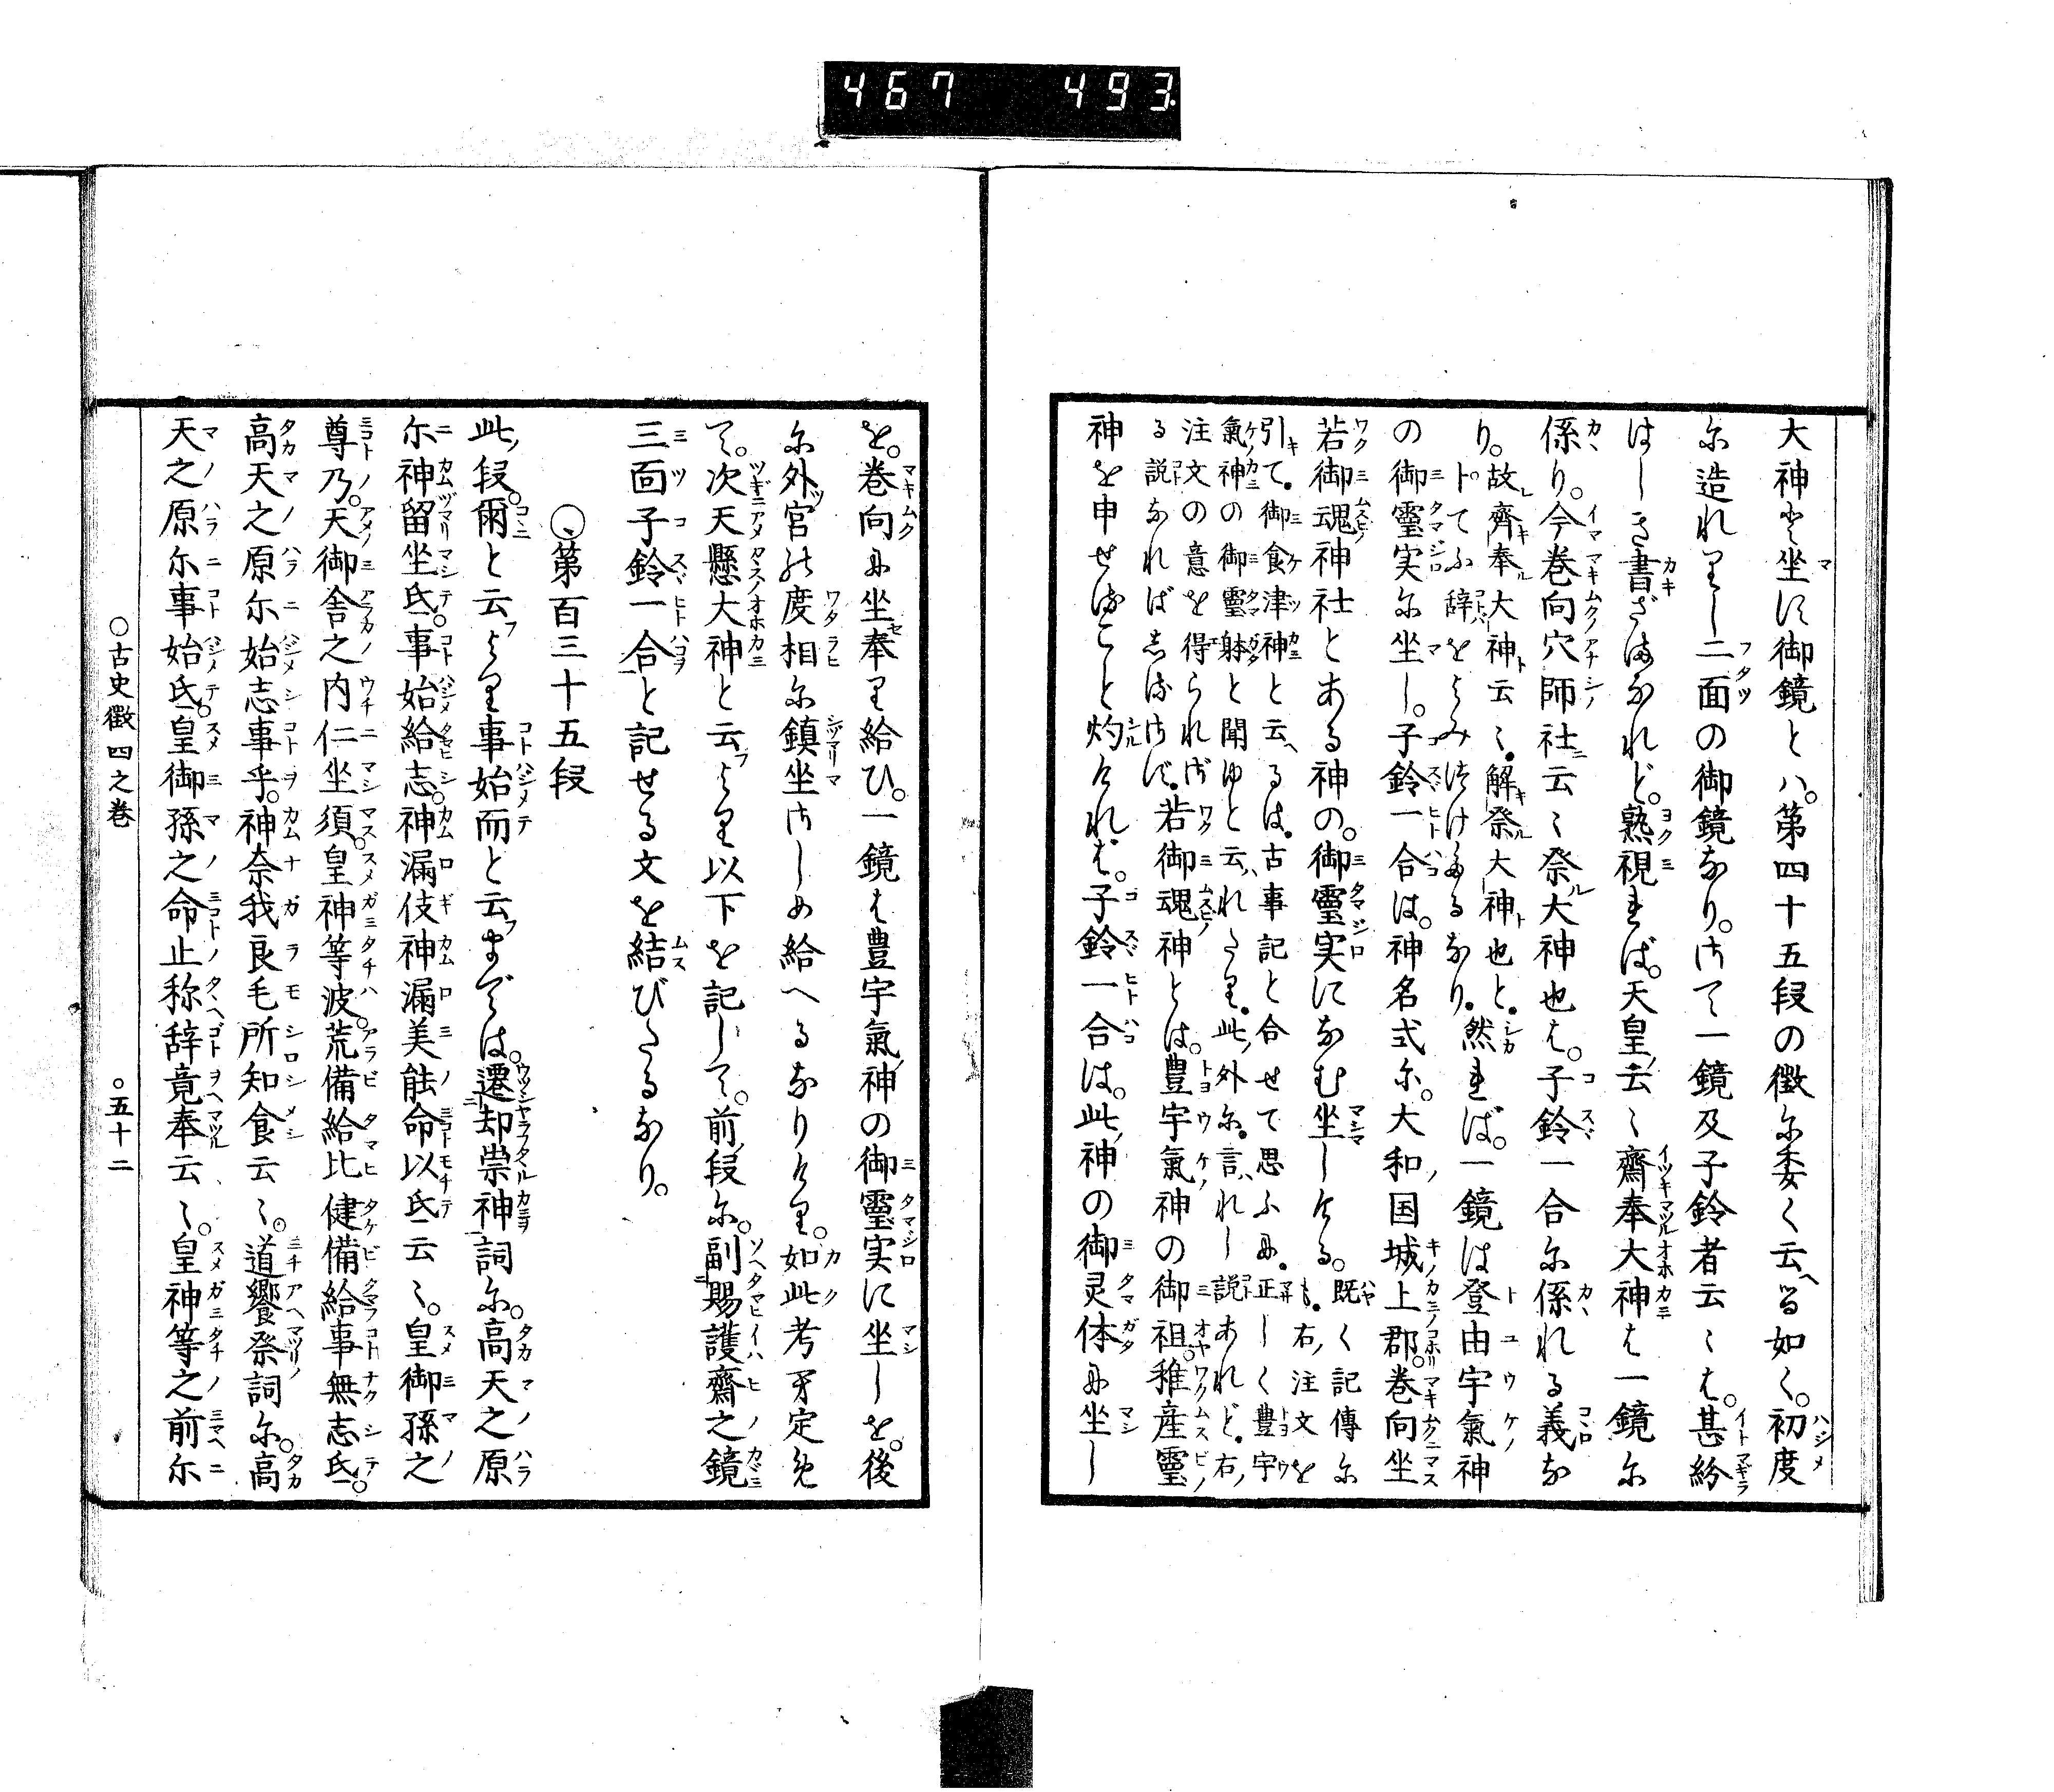 467 493
大神と坐す御鏡とハ。第四十五段の徴尓委く云へる如く。初度
尓造れりし二面の御鏡なり。さて一鏡及子鈴者云〻は。甚紛
はしき書ざまなれど。熟視れば。天皇云〻齋奉大神は一鏡尓
係り。今巻向穴師社云〻祭大神也は。子鈴一合尓係れる義な
り。故齊奉大神云〻。解祭大神也と。然れば。一鏡は登由宇氣神
トてふ辞をよみつけたるなり。
の御靈実尓坐し。子鈴一合は。神名式尓。大和国城上郡。巻向坐
若御魂神社とある神の。御靈実になむ坐しける。既く記傳尓も。右注文を
引て。御食津神と云へるは。古事記と合せて思ふに。正しく豊宇
氣神の御靈躰と聞ゆと云はれたり。此外尓。言はれし説あれど。右
注文の意を得られざる説なれば
若御魂神とは。豊宇氣神の御祖。稚産靈
神を申せること灼ければ。子鈴一合は。此神の御灵体に坐し
を。巻向に坐奉り給ひ。一鏡は豊宇氣神の御靈実に坐しを。後
尓外宮の度相尓鎮坐さしめ給へるなりけり。如此考定め
て。次天懸大神と云より以下を記して。前段尓。副賜護齋之鏡
三面子鈴一合と記せる文を結びたるなり。
〇第百三十五段
此段。爾と云より事始而と云までは。遷却崇神詞尓。高天之原
尓神留坐氐。事始給志。神漏伎神漏美能命以氐云〻。皇御孫之
尊乃。天御舎之内仁坐須。皇神等波。荒備給比健備給事無志氐。
高天之原尓始志事乎。神奈我良毛所知食云〻。道饗祭詞尓。高
天之原尓事始氐。皇御孫之命止称辞竟奉云〻。皇神等之前尓
〇古史徴四之巻 〇五十二